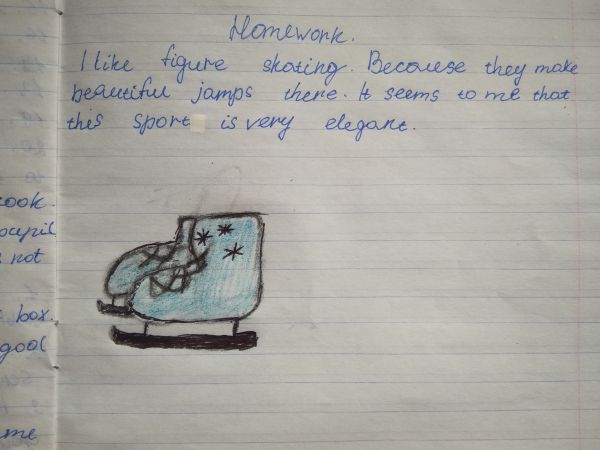 Homework.
I like figure skating. Becouese they make
beautiful jamps there. It seems to me that
this sport is very elegant.
cook.
pupil
not
box.
good
me